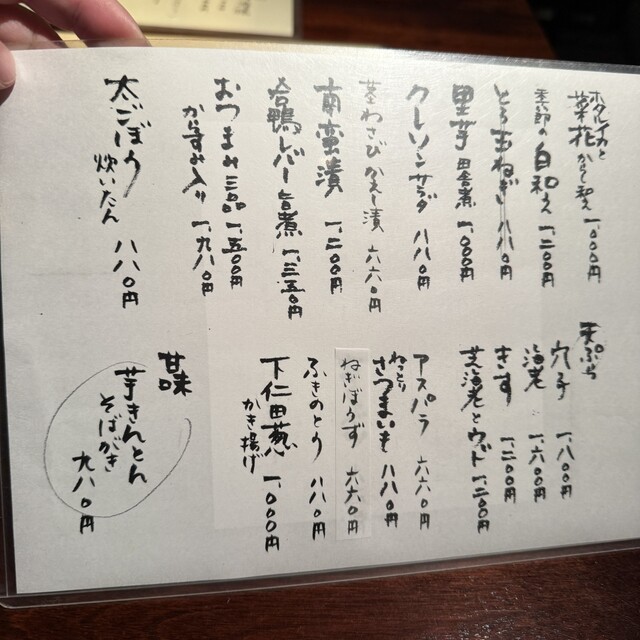 ホタルイカと
菜花からし和え 一、〇〇〇円
季節の白和え 一、二〇〇円
とろ玉ねぎ 八八〇円
里芋田舎煮 一、〇〇〇円
クレソンサラダ 八八〇円
茎わさびかえし漬 六六〇円
南蛮漬 一、二〇〇円
合鴨レバー旨煮 一、三五〇円
おつまみ三品 一、五〇〇円
からすみ入り 一、九八〇円
太ごぼう
炊いたん 八八〇円
天ぷら
穴子 一、八〇〇円
海老 一、六〇〇円
きす 一、二〇〇円
芝海老とウド 一、二〇〇円
アスパラ 六六〇円
ねっとり
さつまいも 八八〇円
ねぎぼうず 六六〇円
ふきのとう 八八〇円
下仁田葱
かき揚げ 一、〇〇〇円
甘味
芋きんとん
そばがき 九八〇円